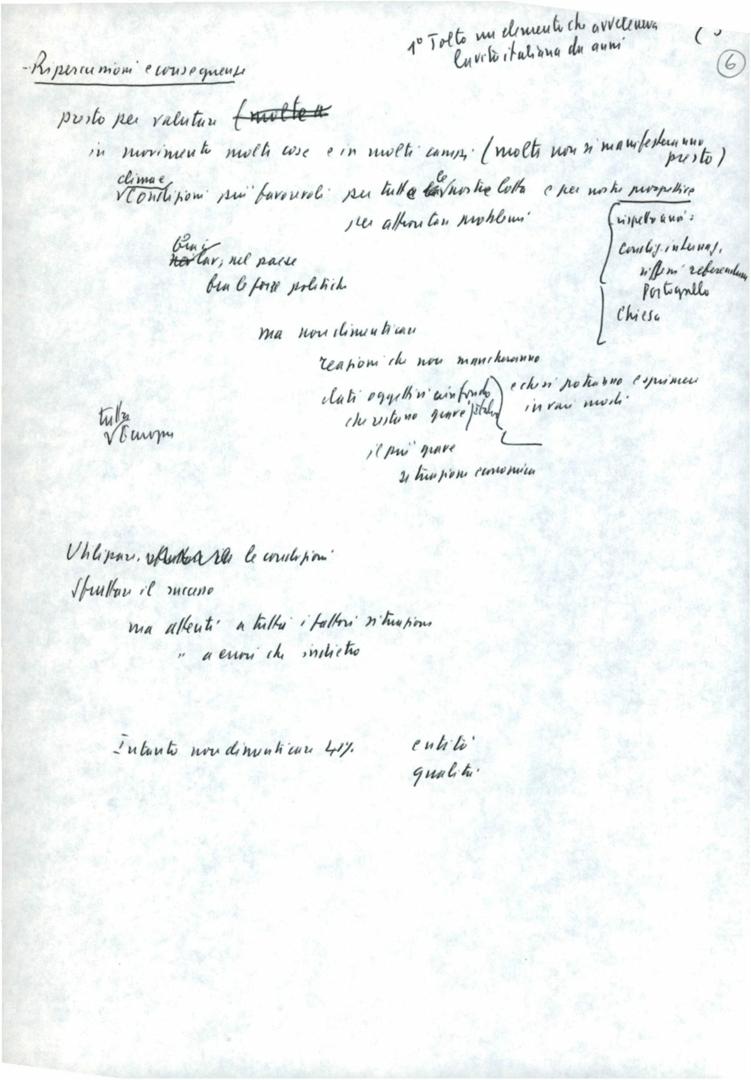 1° Tolto un elemento che avvelenava
la vita italiana da anni
6
- Ripercussioni e conseguenze
presto per valutare (molte
in movimento molte cose e in molti campi (molti non si manifesteranno
presto)
clima e
condizioni più favorevoli per tutte le nostre lotte e per nostre prospettive
per affrontare problemi
rispetto a
nel paese
fra le forze politiche
riflessi referendum
Portogallo
Chiesa
ma non dimenticare
reazioni che non mancheranno
e che si potranno esprimere
in vari modi
dati oggettivi
che restano gravi
tutta
Europa
il più grave
situazione economica
Utilizzare, le condizioni
sfruttare il successo
ma attenti a tutti i fattori situazione
" a errori che indietro
Intanto non dimenticare 41%
entità
qualità